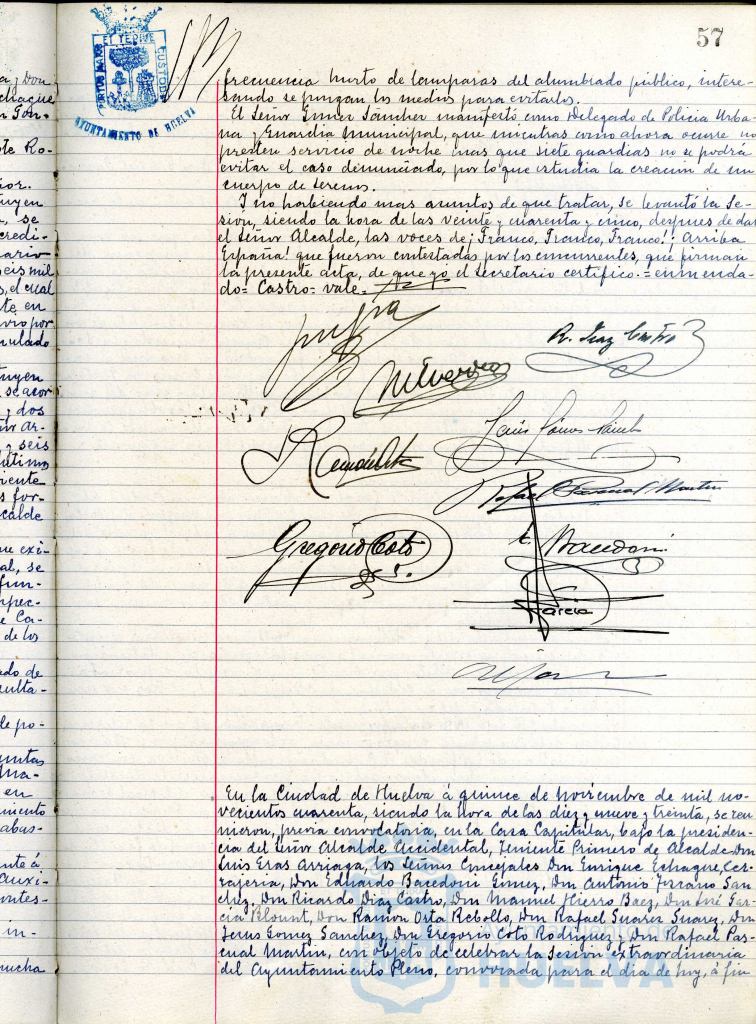 57
PORTUS MARIS ET TERRÆ CUSTODIA
AYUNTAMIENTO DE HUELVA
frecuencia hurto de lamparas del alumbrado público, intere-
sando se pongan los medios para evitarlos.
El Señor Gómez Sanchez manifestó como Delegado de Policia Urba-
na y Guardia municipal, que mientras como ahora ocurre no
presten servicio de noche mas que siete guardias no se podrá
evitar el caso denunciado, por lo que estudia la creacion de un
cuerpo de serenos.
Y no habiendo mas asuntos de que tratar, se levantó la se-
sión, siendo la hora de las veinte y cuarenta y cinco, despues de dar
el Señor Alcalde, las voces de ¡Franco, Franco, Franco!! Arriba
España! que fueron contestadas por los concurrentes, que firman
la presente acta, de que yo el secretario certifico.= enmenda-
do= Castro= vale.
R. Diaz Castro
Jesús Gómez Sanch
Rafael Pascual Martin
Gregorio Coto
E. Bacedoni
Garcia
En la Ciudad de Huelva á quince de noviembre de mil no-
vecientos cuarenta, siendo la hora de las diez y nueve y treinta, se reu-
nieron, previa convocatoria, en la Casa Capitular, bajo la presiden-
cia del Señor Alcalde Accidental, Teniente Primero de Alcalde Don
Luis Eras Arriaga, los Señores Concejales Don Enrique Echague, Cer-
rajeria, Don Eduardo Bacedoni Gimez, Don Antonio Serrano San-
chez, Don Ricardo Diaz Castro, Don Manuel Hierro Baez, Don José Gar-
cia Blount, Don Ramon Orta Rebollo, Don Rafael Suarez Suarez, Don
Jesus Gomez Sanchez, Don Gregorio Coto Rodriguez y Don Rafael Pas-
cual Martin, con objeto de celebrar la Sesion extraordinaria
del Ayuntamiento Pleno, convocada para el dia de hoy, á fin
Ayuntamiento de
HUELVA